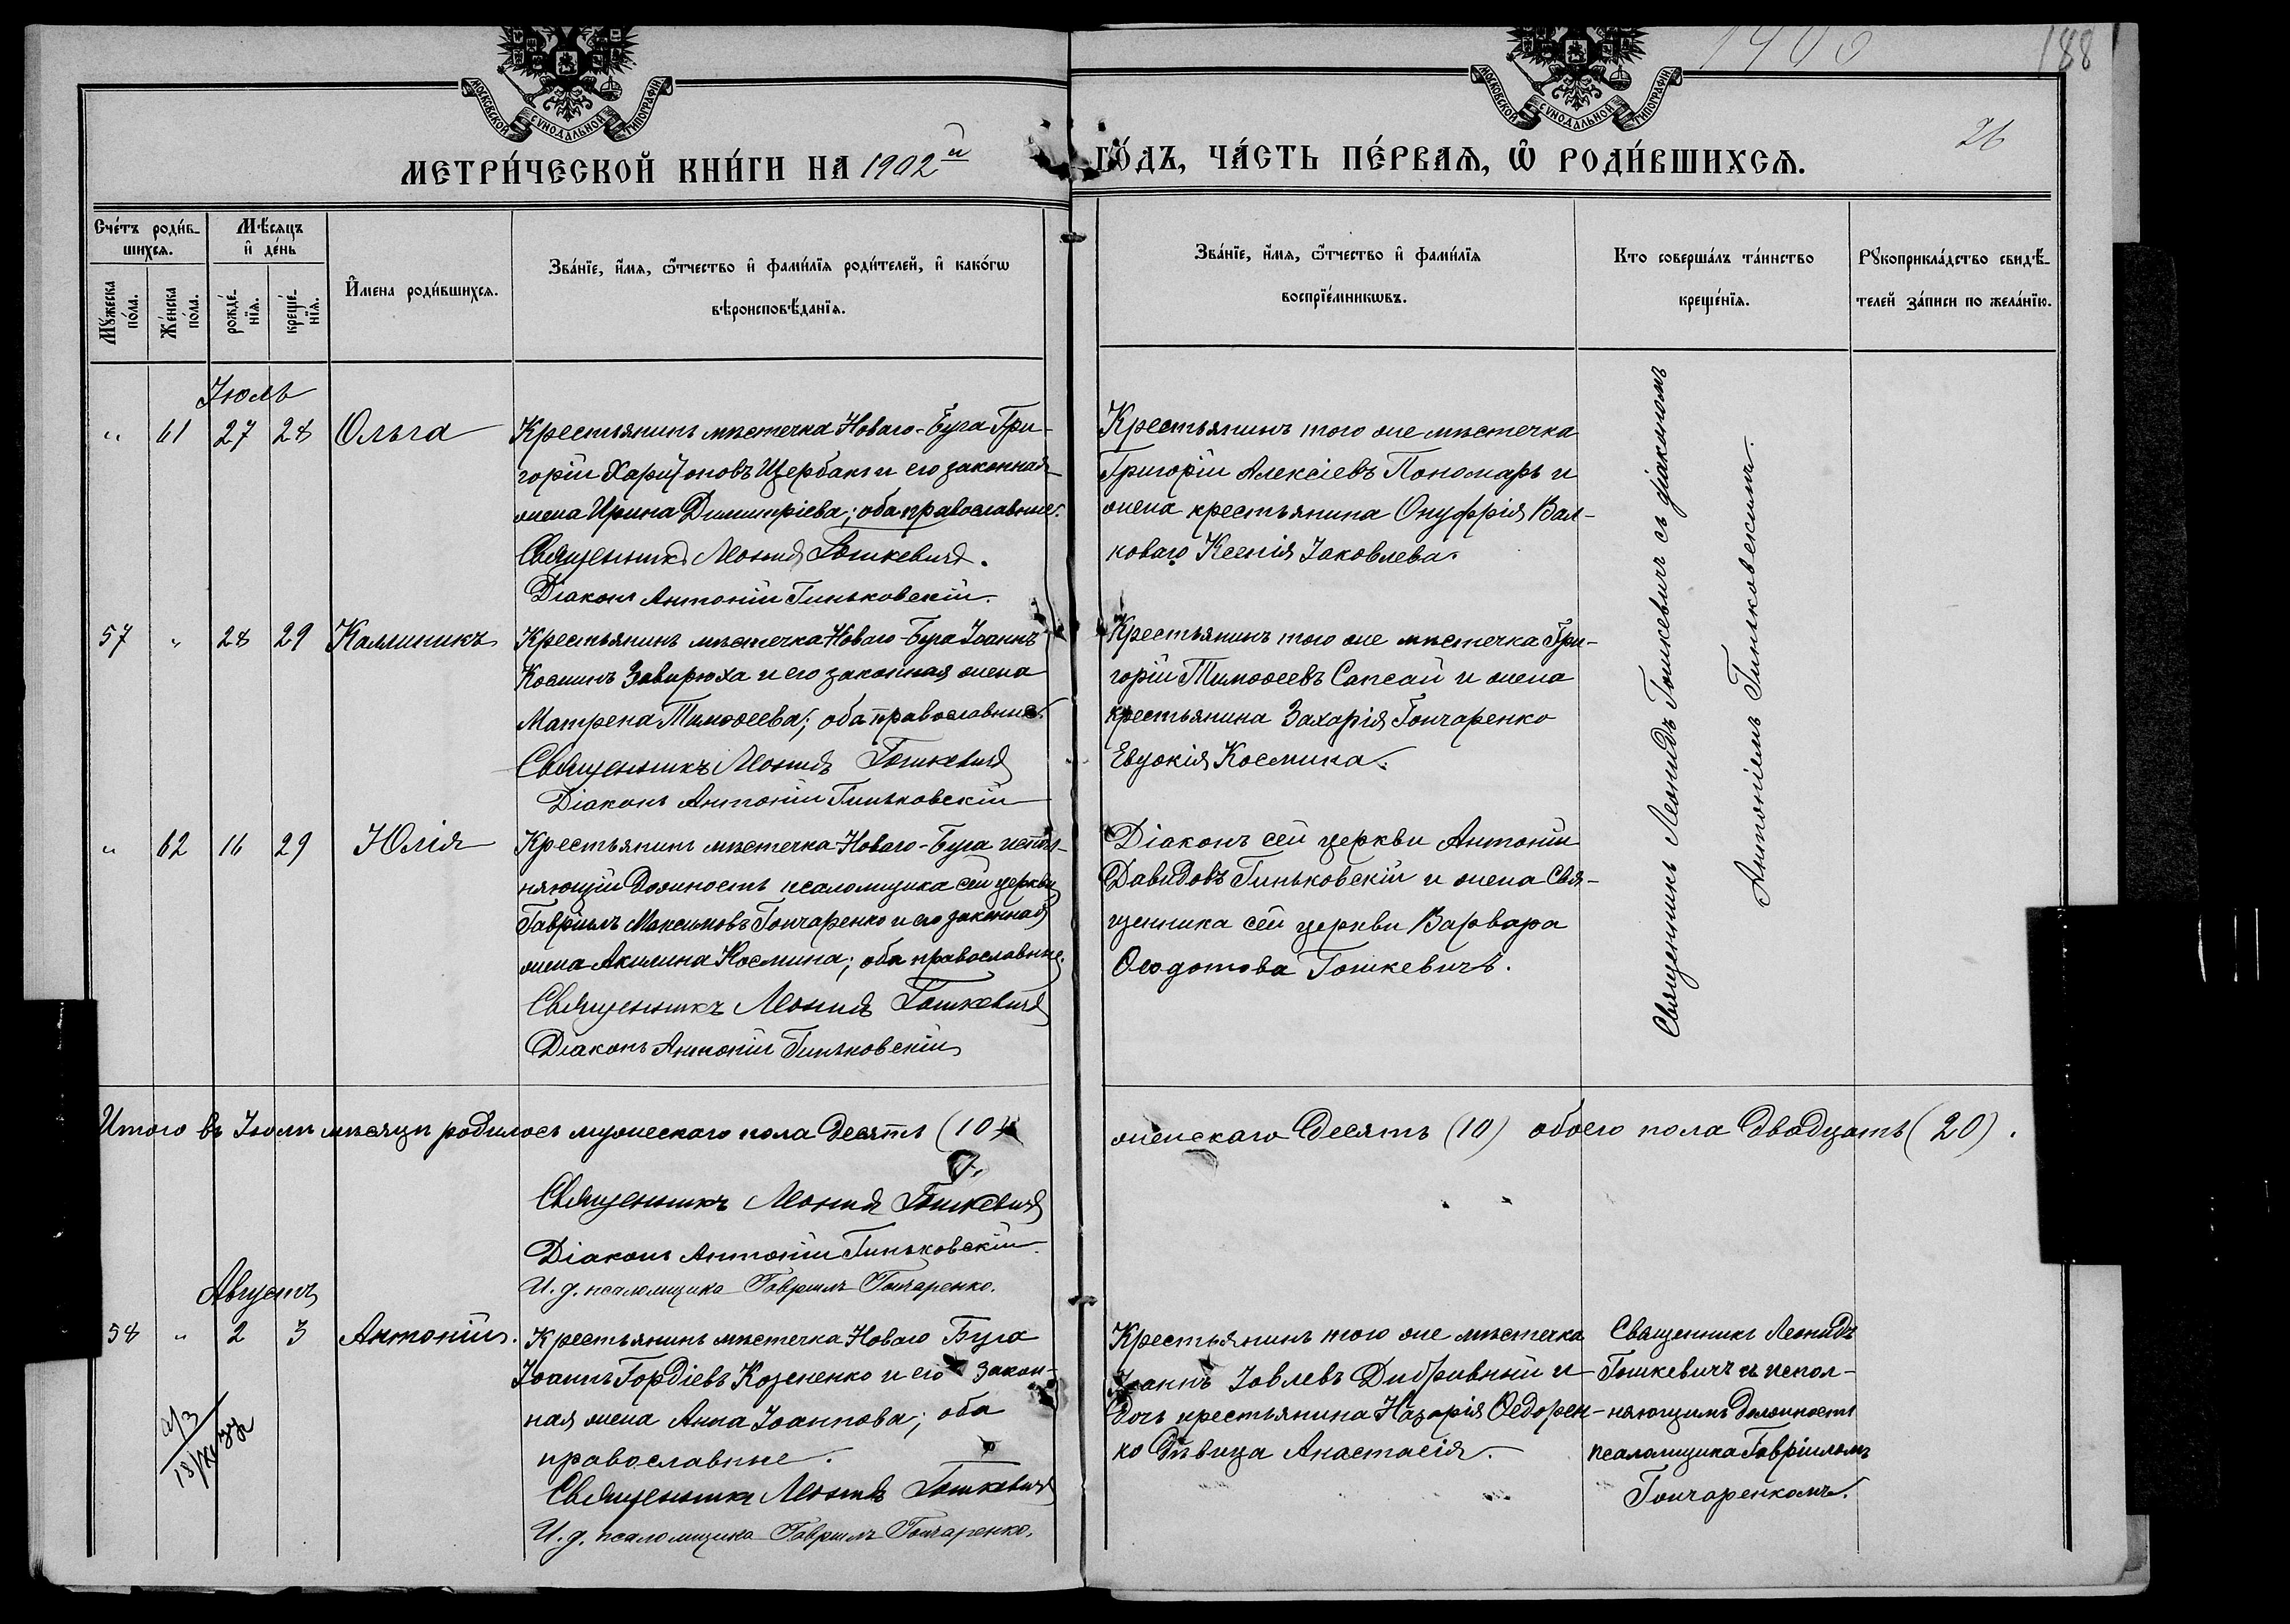 1900
188
26
МОСКОВСКОЙ СѴНОДАЛЬНОЙ ТИПОГРАФІИ
МОСКОВСКОЙ СѴНОДАЛЬНОЙ ТИПОГРАФІИ
МЕТРИ́ЧЕСКОЙ КНИ́ГИ НА 1902й
ГО́ДЪ, ЧА́СТЬ ПЕ́РВАѦ, Ѽ РОДИ́ВШИХСѦ.
Сче́тъ роди́в-
шихсѧ.
Мѣ́сѧцъ
и҆ де́нь
Мꙋ́жеска
по́ла.
Же́нска
по́ла.
рожде́-
нїѧ.
креще́-
нїѧ.
И҆мена роди́вшихсѧ.
Зва́нїе, и҆́мѧ, ѻ҆́тчество и҆ фами́лїѧ роди́телей, и҆ како́гѡ
вѣроисповѣ́данїѧ.
Зва́нїе, и҆́мѧ, ѻ҆́тчество и҆ фами́лїѧ
воспрїе́мникѡвъ.
Кто соверша́лъ та́инство
креще́нїѧ.
Рꙋкоприкла́дство свидѣ́-
телей за́писи по жела́нїю.
Іюль
" 61 27 28 Ольга
Крестьянинъ мѣстечка Новаго-Буга Гри-
горій Харитоновъ Щербакъ и его законная
жена Ирина Димитріева; оба православные.
Священникъ Леонидъ Гошкевичъ.
Діаконъ Антоній Гиньковскій.
Крестьянинъ того же мѣстечка
Григорій Алексіевъ Пономарь и
жена крестьянина Онуфрія Вал-
коваго Ксенія Іаковлева.
57 " 28 29 Каллиникъ
Крестьянинъ мѣстечка Новаго-Буга Іоаннъ
Косминъ Завирюха и его законная жена
Матрена Тимоѳеева; оба православные.
Священникъ Леонидъ Гошкевичъ
Діаконъ Антоній Гиньковскій
Крестьянинъ того же мѣстечка Гри-
горій Тимоѳеевъ Сапсай и жена
крестьянина Захарія Гончаренко
Евдокія Космина.
" 62 16 29 Юлія
Крестьянинъ мѣстечка Новаго-Буга испол-
няющій должность псаломщика сей церкви
Гавріилъ Максимовъ Гончаренко и его законная
жена Акилина Космина; оба православные.
Священникъ Леонидъ Гошкевичъ
Діаконъ Антоній Гиньковскій
Діаконъ сей церкви Антоній
Давидовъ Гиньковскій и жена Свя-
щенника сей церкви Варвара
Ѳеодотова Гошкевичъ.
Священникъ Леонидъ Гошкевичъ съ діакономъ
Антоніемъ Гиньковскимъ.
Итого въ Іюлѣ мѣсяцѣ родилось мужескаго пола десять (10)
женскаго десять (10) обоего пола двадцать (20).
Священникъ Леонидъ Гошкевичъ
Діаконъ Антоній Гиньковскій.
И. д. псаломщика Гавріилъ Гончаренко.
Августъ
58 " 2 3 Антоній.
Крестьянинъ мѣстечка Новаго Буга
Іоаннъ Гордіевъ Козененко и его закон-
ная жена Анна Іоаннова; оба
православные.
Священникъ Леонидъ Гошкевичъ
И. д. псаломщика Гавріилъ Гончаренко.
Крестьянинъ того же мѣстечка
Іоаннъ Іовлевъ Дибривный и
дочь крестьянина Назарія Ѳедорен-
ко дѣвица Анастасія.
Священникъ Леонидъ
Гошкевичъ съ испол-
няющимъ должность
псаломщика Гавріиломъ
Гончаренкомъ.